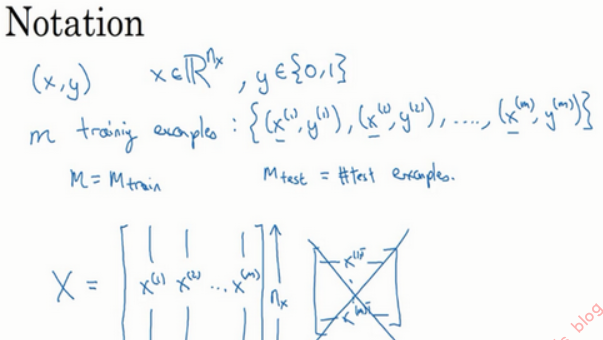 Notation
(x,y) x∈ℝ^{n_x}, y∈{0,1}
m training examples : {(x^{(1)}, y^{(1)}), (x^{(2)}, y^{(2)}), ...., (x^{(m)}, y^{(m)})}
M = M_{train} M_{test} = #test examples.
X = [x^{(1)} x^{(2)} ... x^{(m)}] n_x
x^{(1)T}
x^{(m)T}
blog